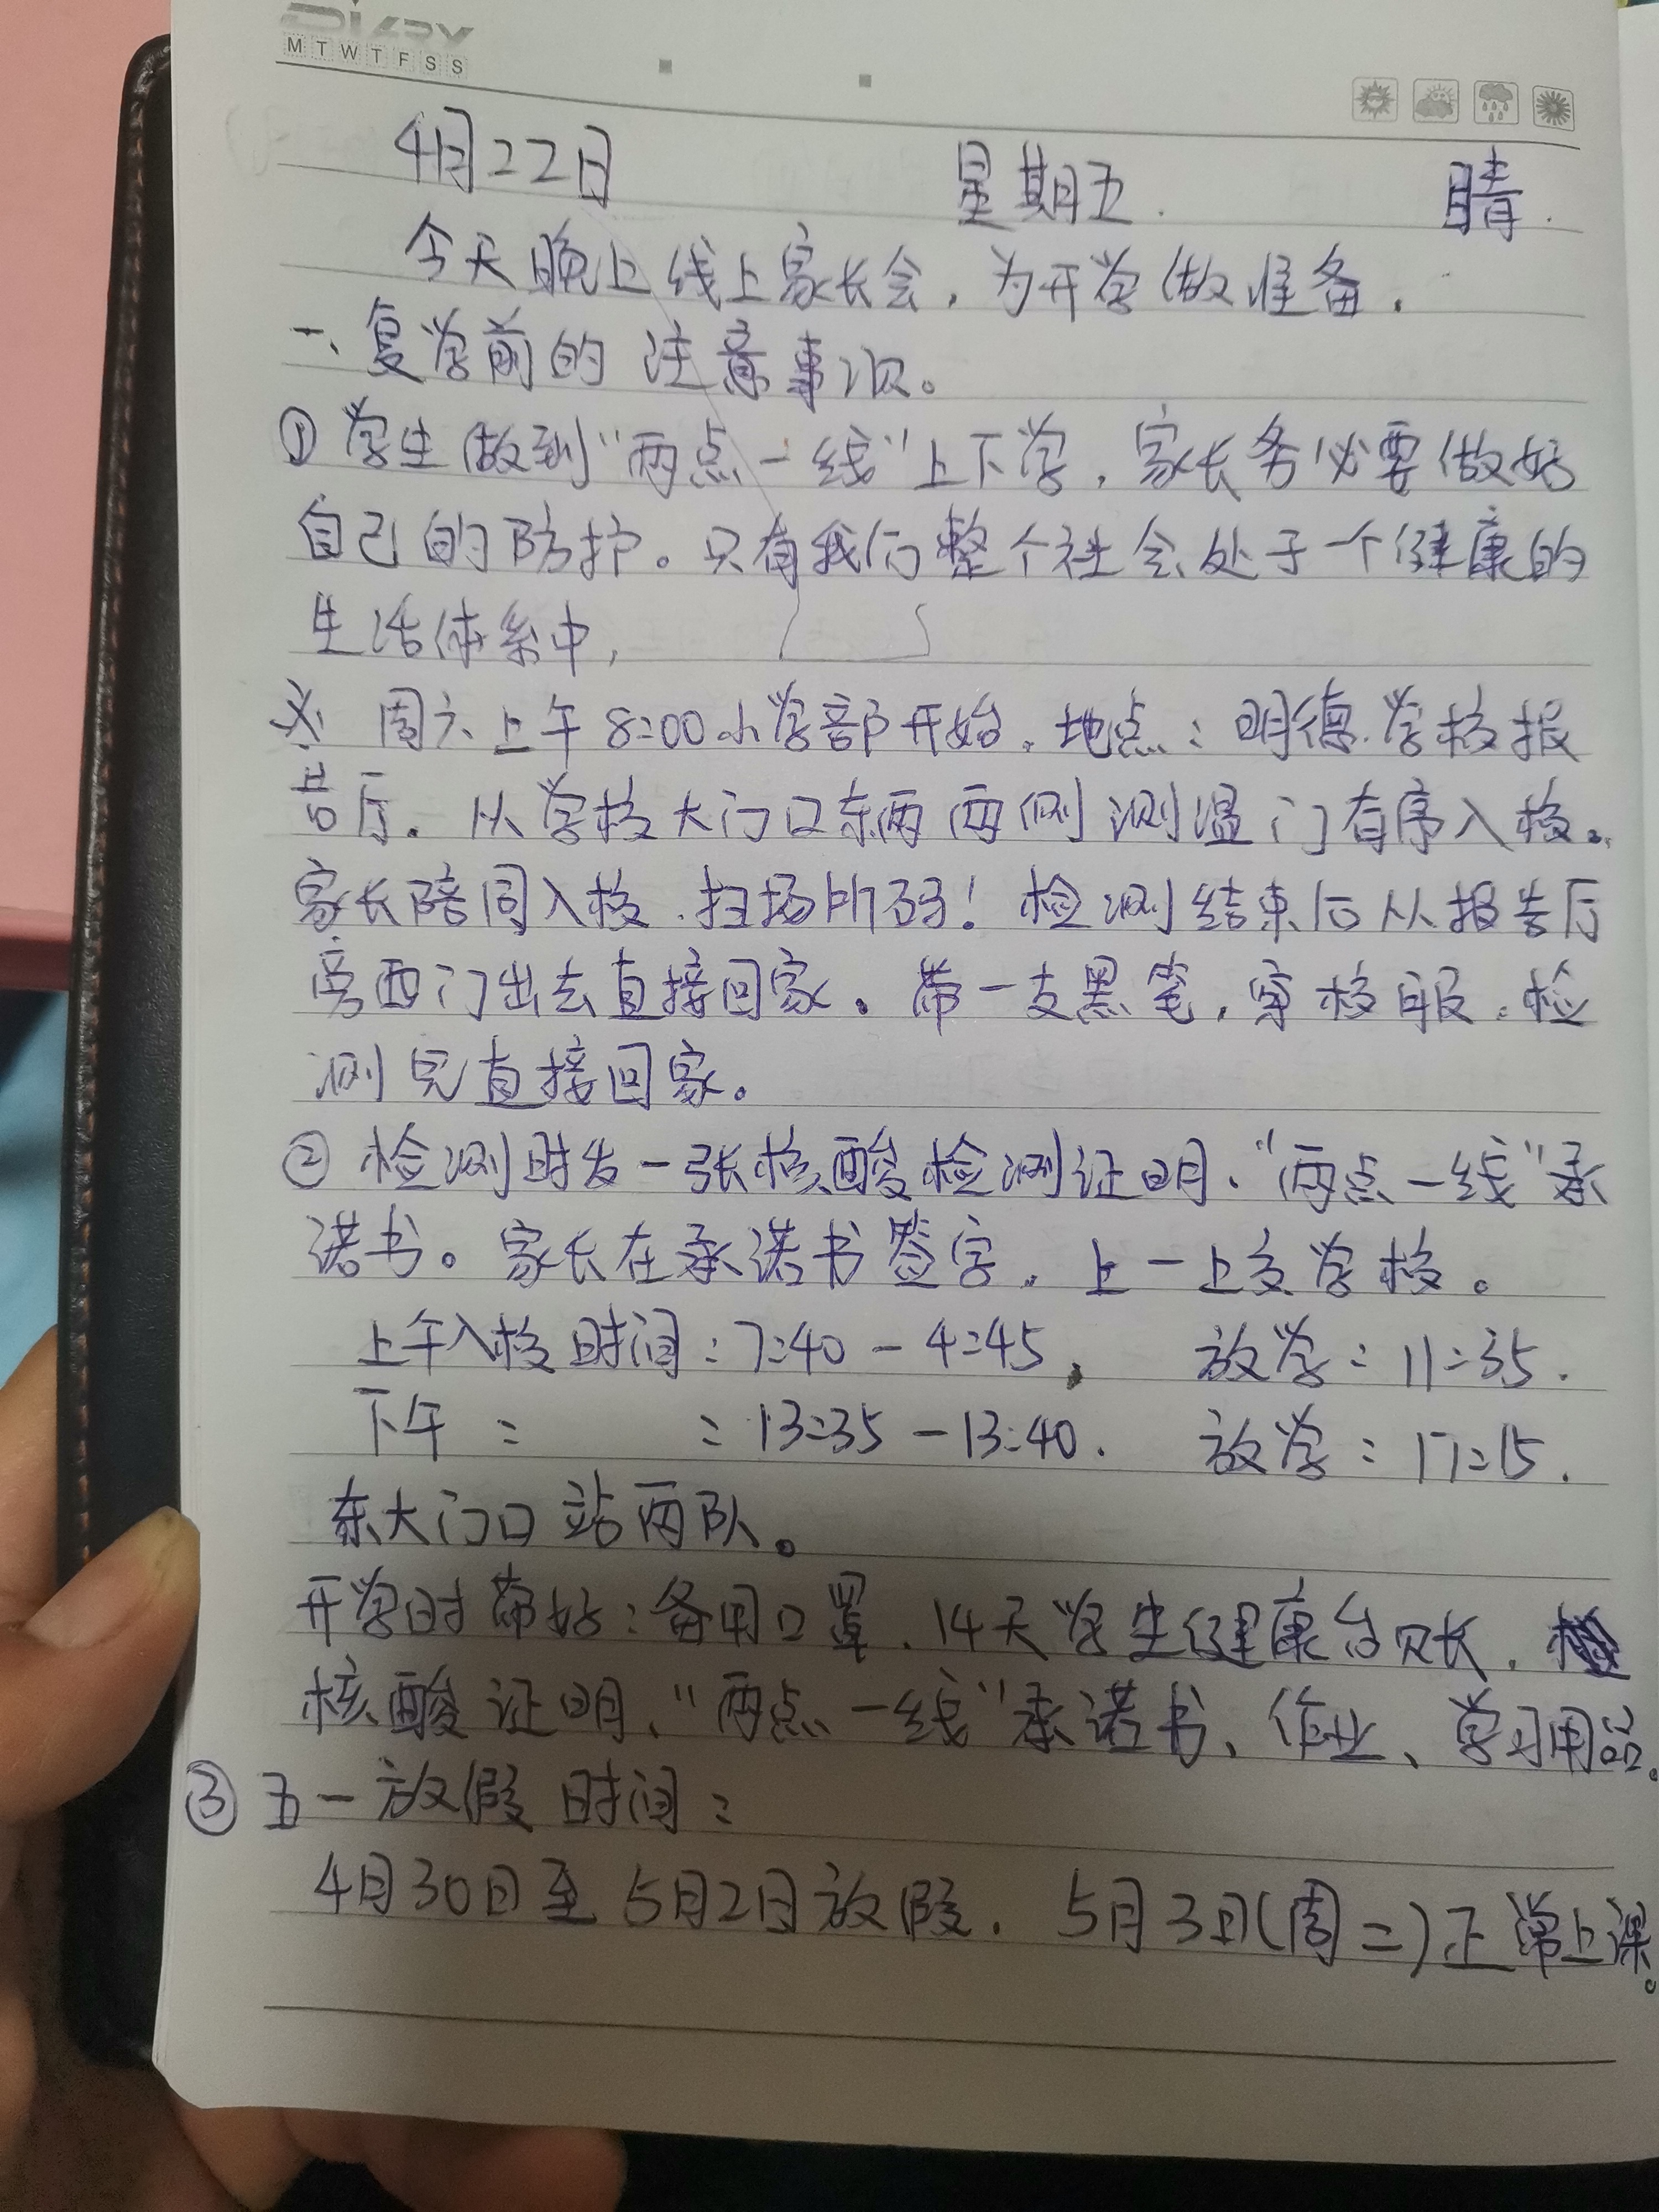 DIARY
M T W T F S S
4月22日 星期五. 晴.
今天晚上线上家长会，为开学做准备.
一、复学前的注意事项。
① 学生做到“两点一线”上下学，家长务必要做好
自己的防护。只有我们整个社会处于一个健康的
生活体系中，
※ 周六上午8:00小学部开始。地点：明德学校报
告厅。从学校大门口东西两侧测温门有序入校。
家长陪同入校，扫场所码！检测结束后从报告厅
旁西门出去直接回家。带一支黑笔，穿校服。检
测完直接回家。
② 检测时发一张核酸检测证明、“两点一线”承
诺书。家长在承诺书签字，上一上交学校。
上午入校时间：7:40-4:45， 放学：11:35.
下午： ：13:35-13:40. 放学：17:15.
东大门口站两队。
开学时带好：备用口罩、14天学生健康台账，
核酸证明、“两点一线”承诺书、作业、学习用品。
③ 五一放假时间：
4月30日至5月2日放假. 5月3日(周二)正常上课。